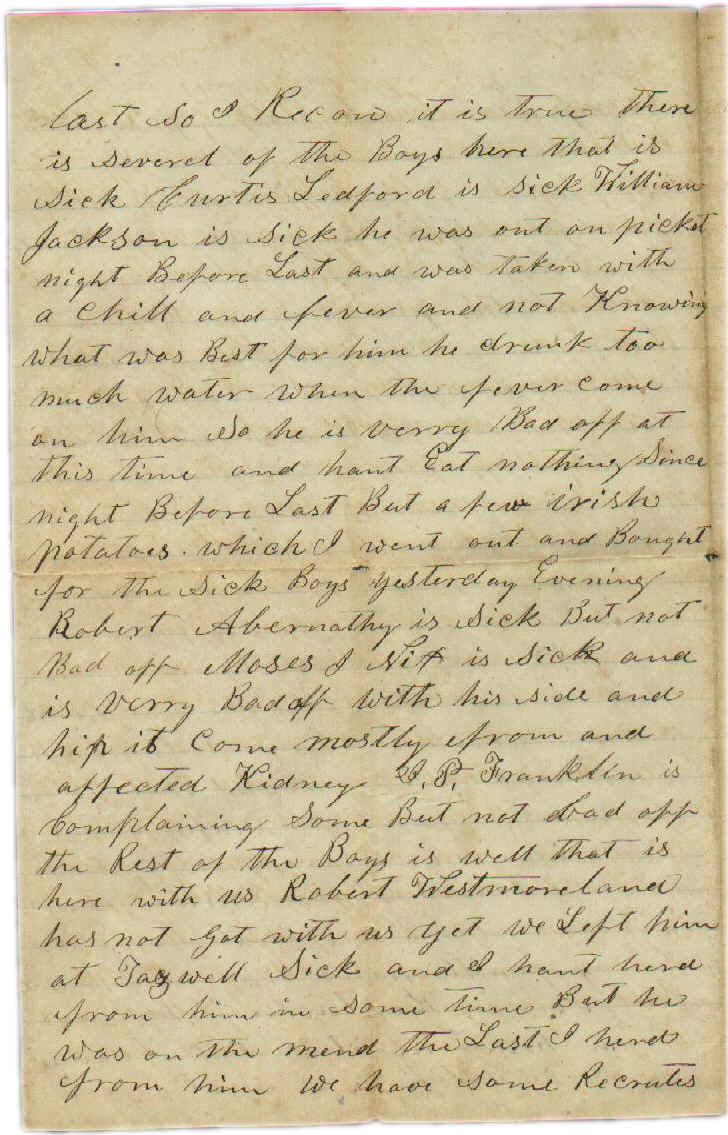 last So I Recon it is true there
is Severel of the Boys here that is
Sick Curtis Ledford is sick William
Jackson is Sick he was out on picket
night Before Last and was taken with
a Chill and fever and not Knowing
what was Best for him he drunk too
much water when the fever come
on him So he is verry Bad off at
this time and hant Eat nothing Since
night Before Last But a few irish
potatoes. which I went out and Bought
for the Sick Boys yesterday Evening
Robert Abernathy is Sick But not
Bad off Moses I is Sick and
is verry Bad off with his side and
hip it Come mostly from and
affected Kidney P. Franklin is
Complaining Some But not Bad off
the Rest of the Boys is well that is
here with us Robert Westmoreland
has not Got with us yet we Left him
at Tazwell Sick and I hant herd
from him in some time But he
was on the mend the Last I herd
from him we have some Recrutes